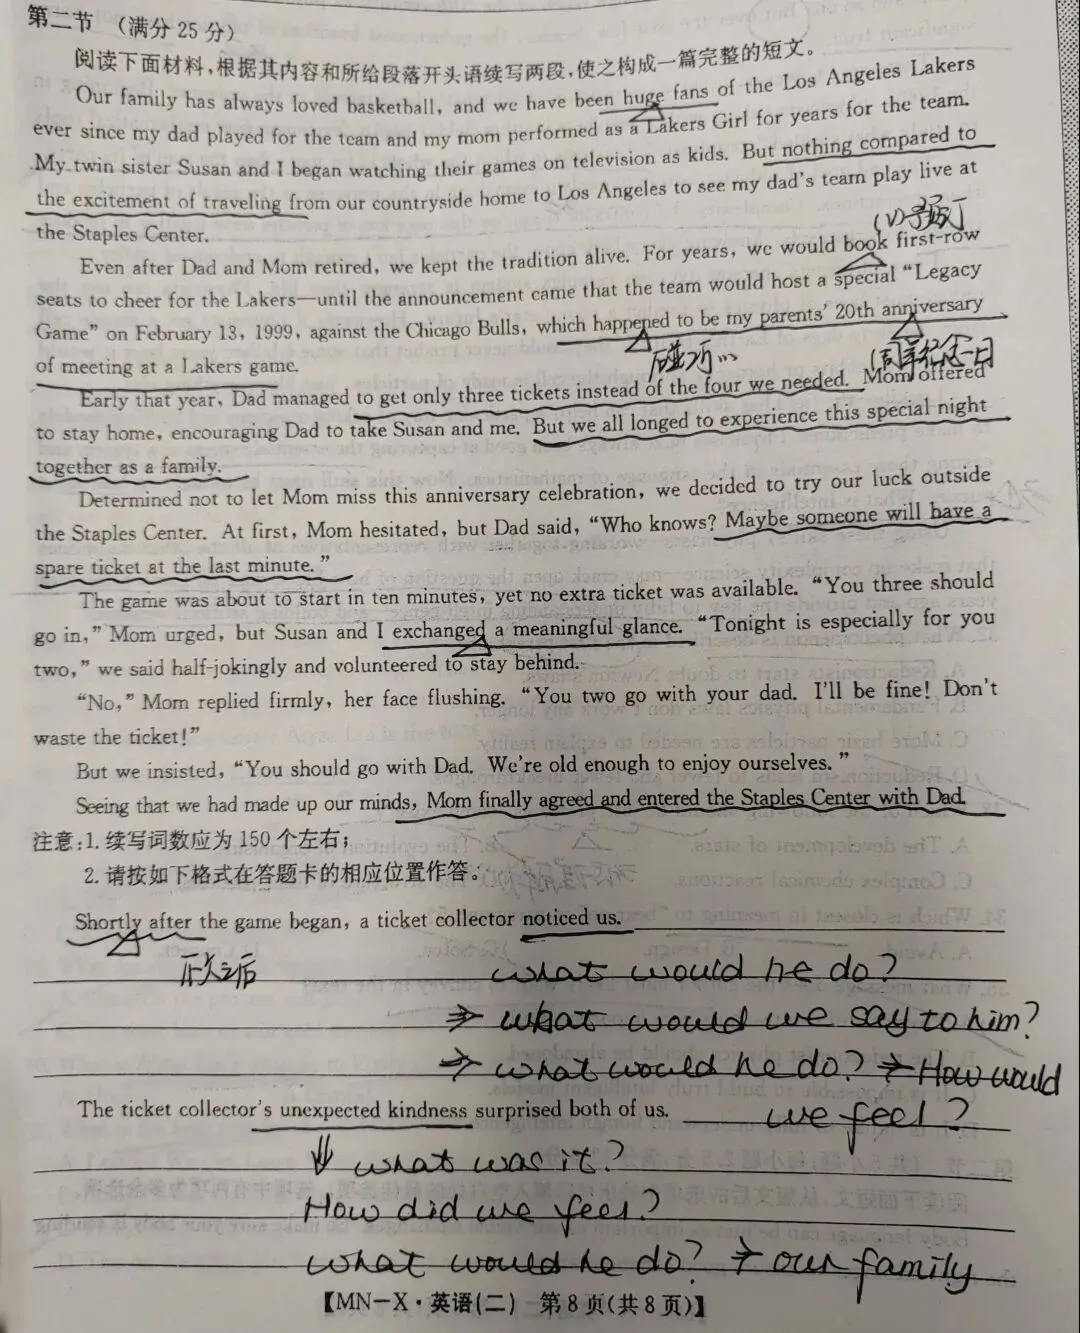 第二节 （满分 25 分）
阅读下面材料,根据其内容和所给段落开头语续写两段,使之构成一篇完整的短文。
Our family has always loved basketball, and we have been huge fans of the Los Angeles Lakers
ever since my dad played for the team and my mom performed as a Lakers Girl for years for the team.
My twin sister Susan and I began watching their games on television as kids. But nothing compared to
the excitement of traveling from our countryside home to Los Angeles to see my dad's team play live at
the Staples Center.
(V)预订
Even after Dad and Mom retired, we kept the tradition alive. For years, we would book first-row
seats to cheer for the Lakers—until the announcement came that the team would host a special “Legacy
Game” on February 13, 1999, against the Chicago Bulls, which happened to be my parents' 20th anniversary
of meeting at a Lakers game.
碰巧
周年纪念日
Early that year, Dad managed to get only three tickets instead of the four we needed. Mom offered
to stay home, encouraging Dad to take Susan and me. But we all longed to experience this special night
together as a family.
Determined not to let Mom miss this anniversary celebration, we decided to try our luck outside
the Staples Center. At first, Mom hesitated, but Dad said, “Who knows? Maybe someone will have a
spare ticket at the last minute.”
The game was about to start in ten minutes, yet no extra ticket was available. “You three should
go in,” Mom urged, but Susan and I exchanged a meaningful glance. “Tonight is especially for you
two,” we said half-jokingly and volunteered to stay behind.
“No,” Mom replied firmly, her face flushing. “You two go with your dad. I'll be fine! Don't
waste the ticket!”
But we insisted, “You should go with Dad. We're old enough to enjoy ourselves.”
Seeing that we had made up our minds, Mom finally agreed and entered the Staples Center with Dad.
注意:1. 续写词数应为 150 个左右;
2. 请按如下格式在答题卡的相应位置作答。
Shortly after the game began, a ticket collector noticed us.
what would he do?
→ what would we say to him?
→ what would he do? → How would
we feel?
The ticket collector's unexpected kindness surprised both of us.
⇓ what was it?
How did we feel?
what would he do? → our family
【MN－X·英语(二) 第 8 页(共 8 页)】